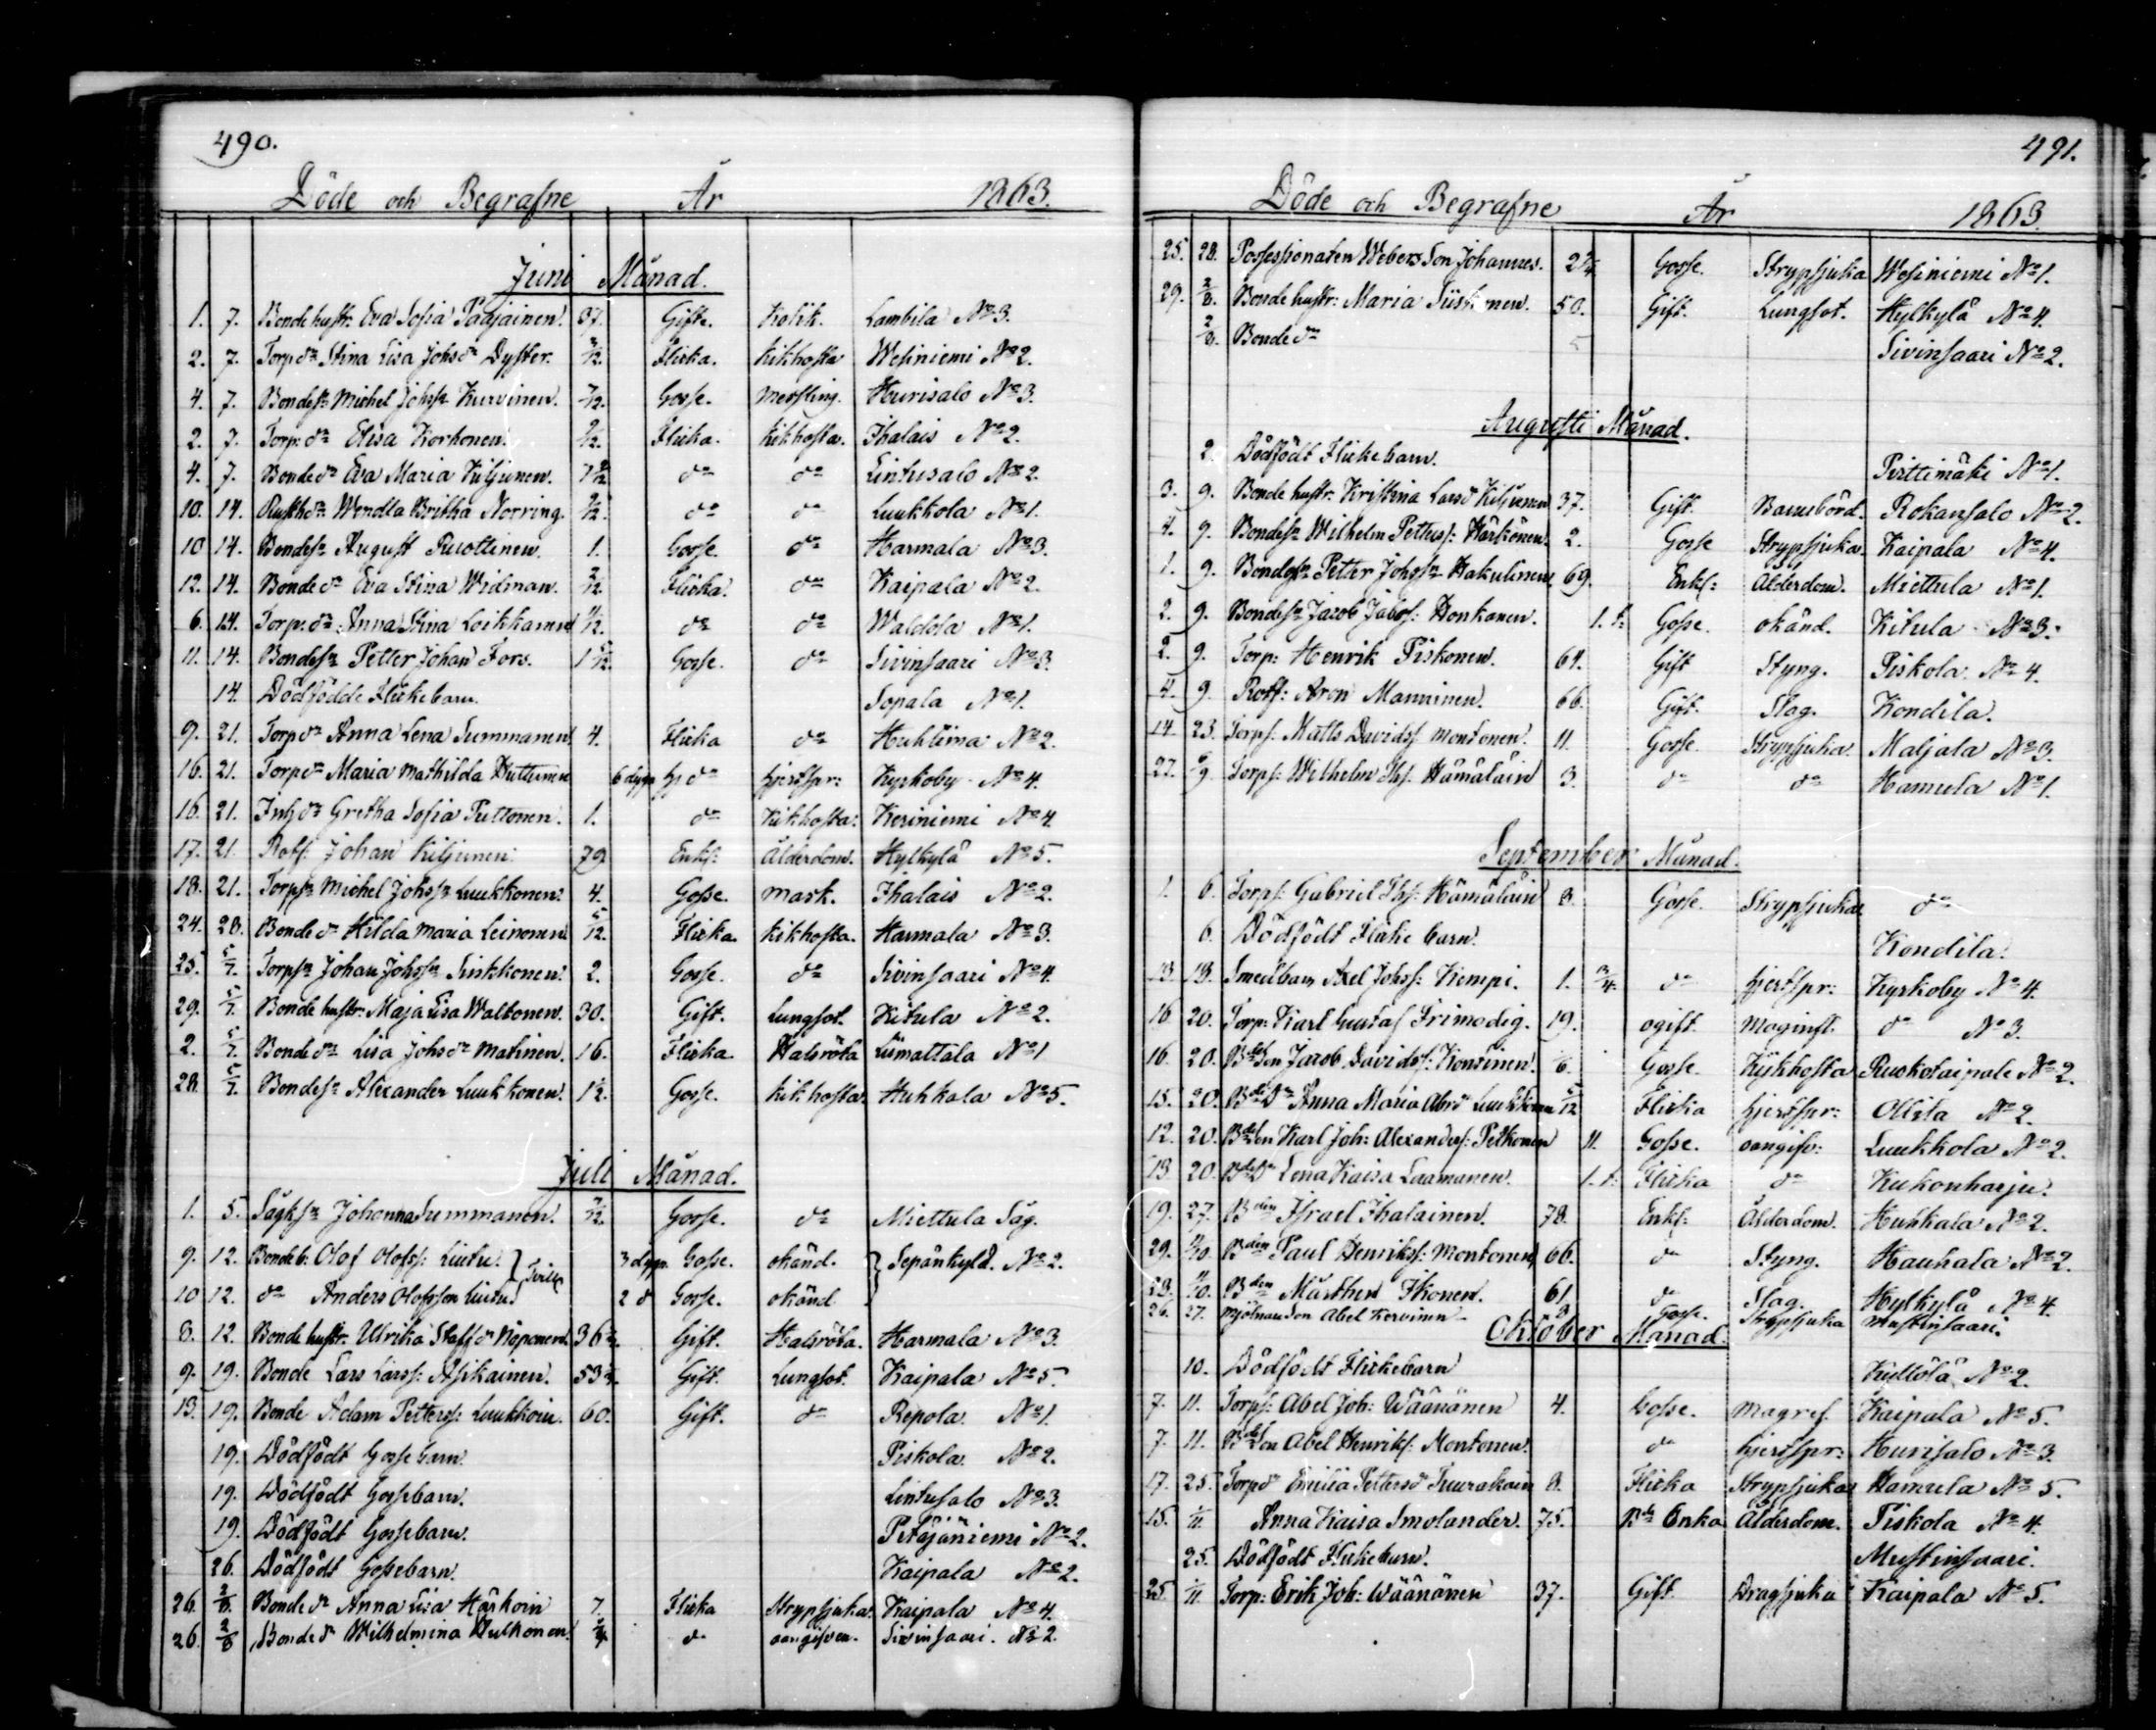 490.
Döde och Begrafne År 1863.
Juni Månad.
1. 7. Bonde hustr: Eva Sofia Paajainen. 37. Gift. Kolik. Lambila No 3.
2. 7. Torp. dr Stina Lisa Johsdr Dyster. Flicka. Kikhosta Wesiniemi No 2.
4. 7. Bondesn Michel Johssn Kurvinen. 7/12. Gosse. Messling. Hurisalo No 3.
2. 7. Torp: dr Elisa Korhonen. Flicka. Kikhosta. Ihalais No 2.
4. 7. Bonde dr Eva Maria Kiljunen. do do Lintusalo No 2.
10. 14. Rusth dr Wendla Britha Norring. do do Luukkola No 1.
10 14. Bondesn August Purottinen. 1. Gosse. do Harmala No 3.
12. 14. Bonde dr Eva Stina Widman. Flicka. do Kaipala No 2.
6. 14. Torp: dr Anna Stina Loikkanen do do Waldola No 1.
11. 14. Bondesn Petter Johan Fors. Gosse. do Sivinsaari No 3.
14. Dödfödde Flickebarn. Sopala No 1.
9. 21. Torp dr Anna Lena Summanen. 4. Flicka do Huhtima No 2.
16. 21. Torp dr Maria Mathilda Huttunen 6 dygn do hjertspr: Kyrkoby No 4.
16. 21. Inh dr Gretha Sofia Puttonen. 1. do Kikhosta: Keriniemi No 4.
17. 21. Rots: Johan Kiljunen. 79. Enkl: Ålderdom. Hylkylä No 5.
18. 21. Torpsn Michel Johssn Luukkonen. 4. Gosse. mask. Ihalais No 2.
24. 28. Bonde dr Hilda Maria Leinonen 5/12. Flicka. Kikhosta. Harmala No 3.
25. 5/7. Torpsn Johan Johssn Sinkkonen. 2. Gosse. do Sivinsaari No 4.
29. 5/7. Bonde hustr: Maja Lisa Waltonen. 30. Gift. Lungsot. Kitula No 2.
2. 5/7. Bonde dr Lisa Johsdr Matinen. 16. Flicka. Halsröta Liimattala No 1
28. 5/7. Bondesn Alexander Luukkonen. Gosse. Kikhosta. Huhkala No 5.
Juli Månad.
1. 5. Sågksn Johanna Summanen. 7/12. Gosse. do Miettula Såg.
9. 12. Bondeb: Olof Olofss: Liutu. } 3 dygn. Gosse. okänd. } Sepänkylä. No 2.
10 12. do Anders Olofsson Liutu 2 d Gosse. okänd
8. 12. Bonde hustr. Ulrika Staffdr Näponen. 36 Gift. Halsröta. Harmala No 3.
9. 19. Bonde Lars Larss: Asikainen. 53 Gift. Lungsot. Kaipala No 5.
13. 19. Bonde Adam Petterss: Luukkoin. 60. Gift. do Repola No 1.
19. Dödfödt Gosse barn. Piskola. No 2.
19. Dödfödt Gossebarn. Lintusalo No 3.
19. Dödfödt Gossebarn. Petäjäniemi No 2.
26. Dödfödt Gossebarn. Kaipala No 2.
26. 2/8. Bonde dr Anna Lisa Härkoin 7. Flicka Strypsjuka. Kaipala No 4.
26. 2/8 Bonde dr Wilhelmina Hulkonen. do oangifven. Sivinsaari. No 2.
491.
Döde och Begrafne År 1863.
25. 28. Possessionaten Webers Son Johannes. Gosse. Strypsjuka Wesiniemi No 1.
29. 2/8. Bonde hustr: Maria Siiskonen. 50. Gift. Lungsot. Hylkylä No 4.
2/8. Bonde dr Sivinsaari No 2.
Augusti Månad.
2. Dödfödt Flickebarn. Pisttimäki No 1.
3. 9. Bonde hustr: Kristina Larsdr Kiljunen 37. Gift. Barnsbörd. Rokansalo No 2.
4. 9. Bondesn Wilhelm Petterss: Härkönen. 2. Gosse Strypsjuka. Kaipala No 4.
1. 9. Bondesn Petter Johssn Hakulinen 69. Enkl: Ålderdom. Miettula No 1.
2. 9. Bondesn Jacob Jakobs: Honkanen. 1. t. Gosse. okänd. Kitula No 3.
2. 9. Torp: Henrik Piskonen. 61. Gift Styng. Piskola. No 4.
4. 9. Rots: Aron Manninen. 66. Gift. Slag. Kondila.
14. 23. Torps: Matts Davids: Montonen. 11. Gosse. Strypsjuka. Maljala No 3.
27. 6/9. Torps: Wilhelm Ths: Hämäläin 3. do do Hamula No 1.
September Månad.
1. 6. Torps: Gabriel Ths: Hämäläin 8. Gosse. Strypsjuka do
6. Dödfödt Flicke barn. Kondila.
13. 13. Smedbarn Axel Johss: Kempi. 1. do hjertspr: Kyrkoby No 4.
16 20. Torp: Karl Gustaf Frimodig. 19. ogift. Maginfl. do No 3.
16. 20. Bdeson Jacob Davidss: Konsinen. Gosse. Kykhosta Ruokotaipale No 2.
15. 20. Bde dr Anna Maria Abrsdr Luukkonen 5/12 Flicka hjertspr: Ollila No 2.
12. 20. Bdeson Karl Joh: Alexanders: Pelkonen 11. Gosse. oangifv: Luukkola No 2.
13 20. Bde dr Lena Kaisa Laamanen. 1. t. Flicka do Kukonharju.
19. 27. Bden Israel Ihalainen. 78. Enkl: Ålderdom. Huhkala No 2.
29. 4/10. Bden Paul Henrikss: Montonen 66. do Styng. Hauhala No 2.
28. 4/10. Bden Mårthen Ikonen. 61. do Slag. Hylkylä No 4.
26. 27. Mjölnareson Abel Kervinen 3 Gosse. Strypsjuka Mustinsaari.
Oktober Månad.
10. Dödfödt Flickebarn Kultölä No 2.
7. 11. Torps: Abel Joh: Wäänänen 4. Gosse. Magref. Kaipala No 5.
7. 11. Bdeson Abel Henriks: Montonen. do hjertspr: Hurisalo No 3.
17. 25. Torp dr Emilia Pettersdr Tuurakain 8. Flicka Strypsjuka Hamula No 5.
15. 1/11. Anna Kaisa Smolander. 75. Bde Enka Ålderdom. Piskola No 4.
25. Dödfödt Flickebarn. Mustinsaari.
25. 1/11. Torp: Erik Joh: Wäänänen 37. Gift. Dragsjuka Kaipala No 5.